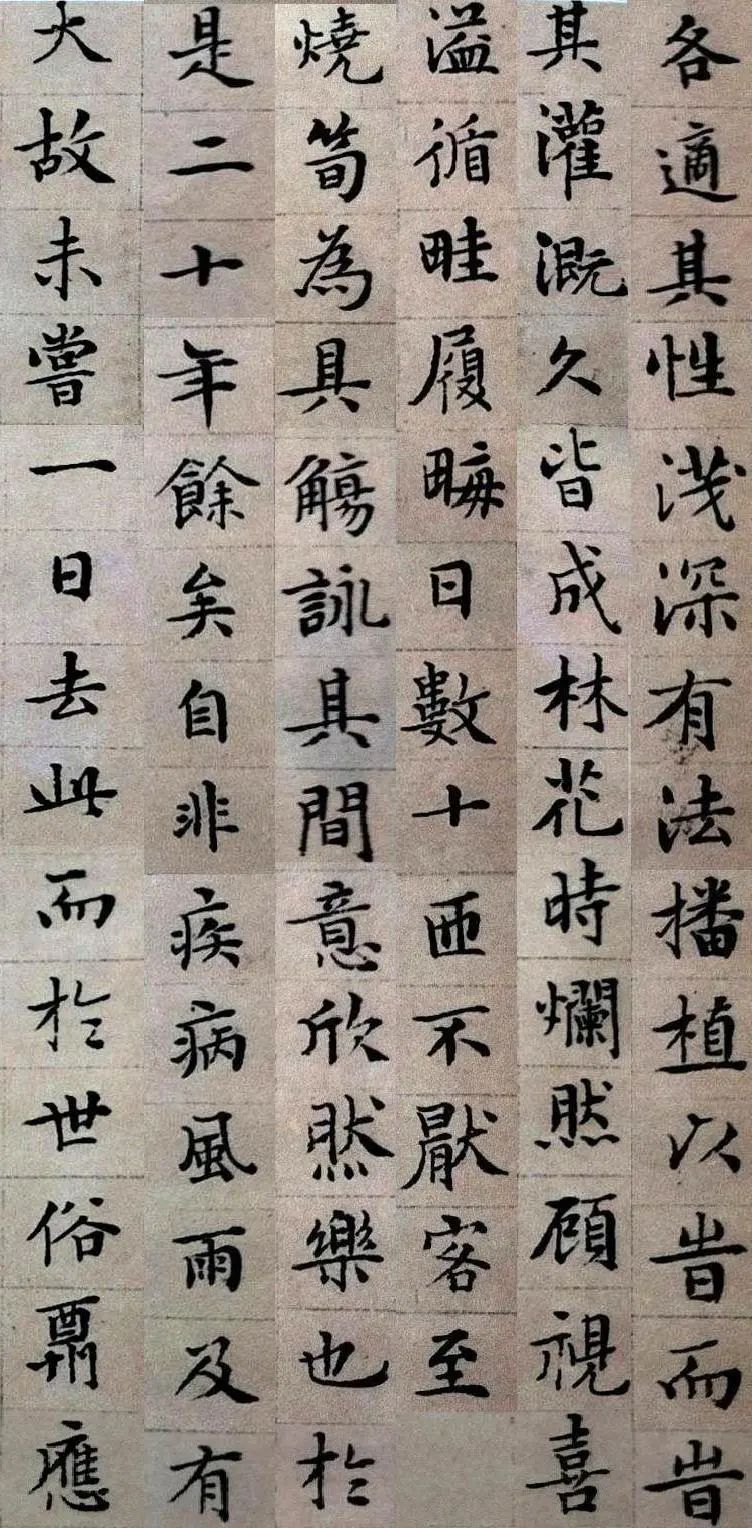 各適其性浅深有法播植以旹而旹
其灌溉久皆成林花時爛然頋視喜
溢循畦履畮日數十匝不厭客至
燒筍為具觴詠其間意欣然樂也於
是二十年餘矣自非疾病風雨及有
大故未嘗一日去此而於世俗酬應